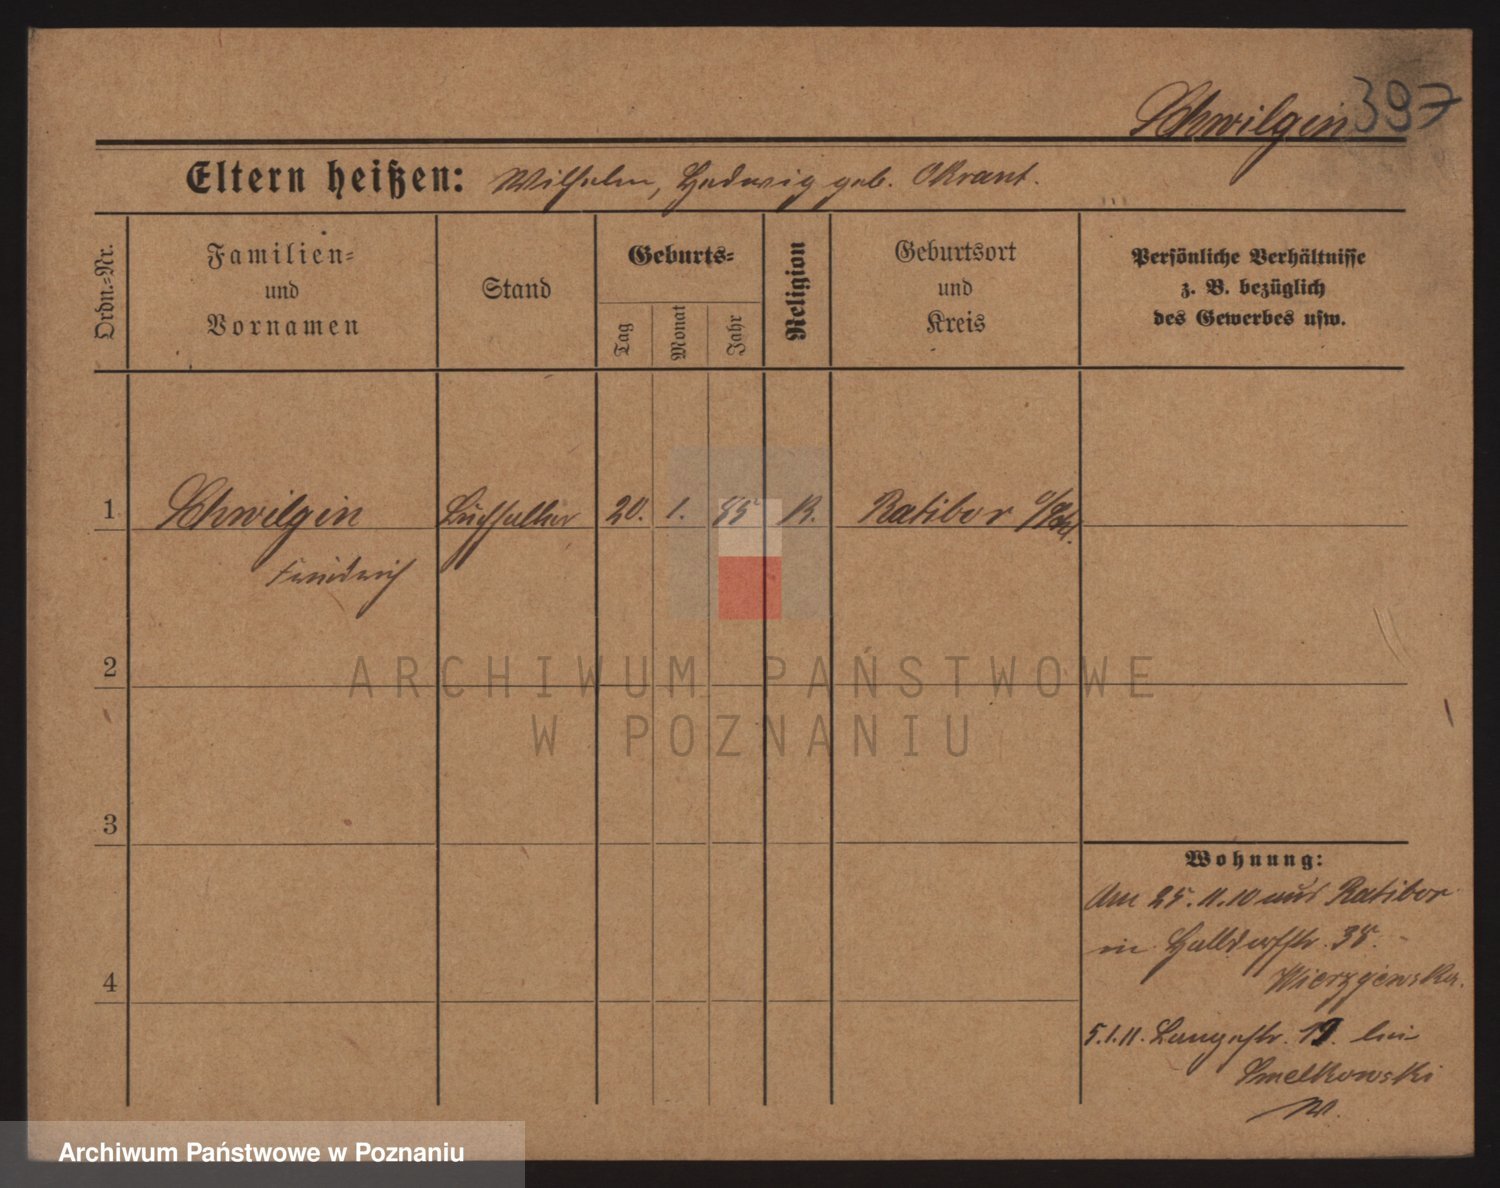 Schwilgin 397
Eltern heißen: Wilhelm, Hedwig geb. Okrant.
Ordn.-Nr.
Familien-
und
Vornamen
Stand
Geburts-
Tag
Monat
Jahr
Religion
Geburtsort
und
Kreis
Persönliche Verhältnisse
z. B. bezüglich
des Gewerbes usw.
1 Schwilgin Buchhalter 20. 1. 85 K. Ratibor o/Schl.
Friedrich
2
3
4
Wohnung:
Am 25.11.10 aus Ratibor
in Halldorfstr. 35.
5.1.11. Langestr. 19. bei
Smelkowski
W.
ARCHIWUM PAŃSTWOWE
W POZNANIU
Archiwum Państwowe w Poznaniu